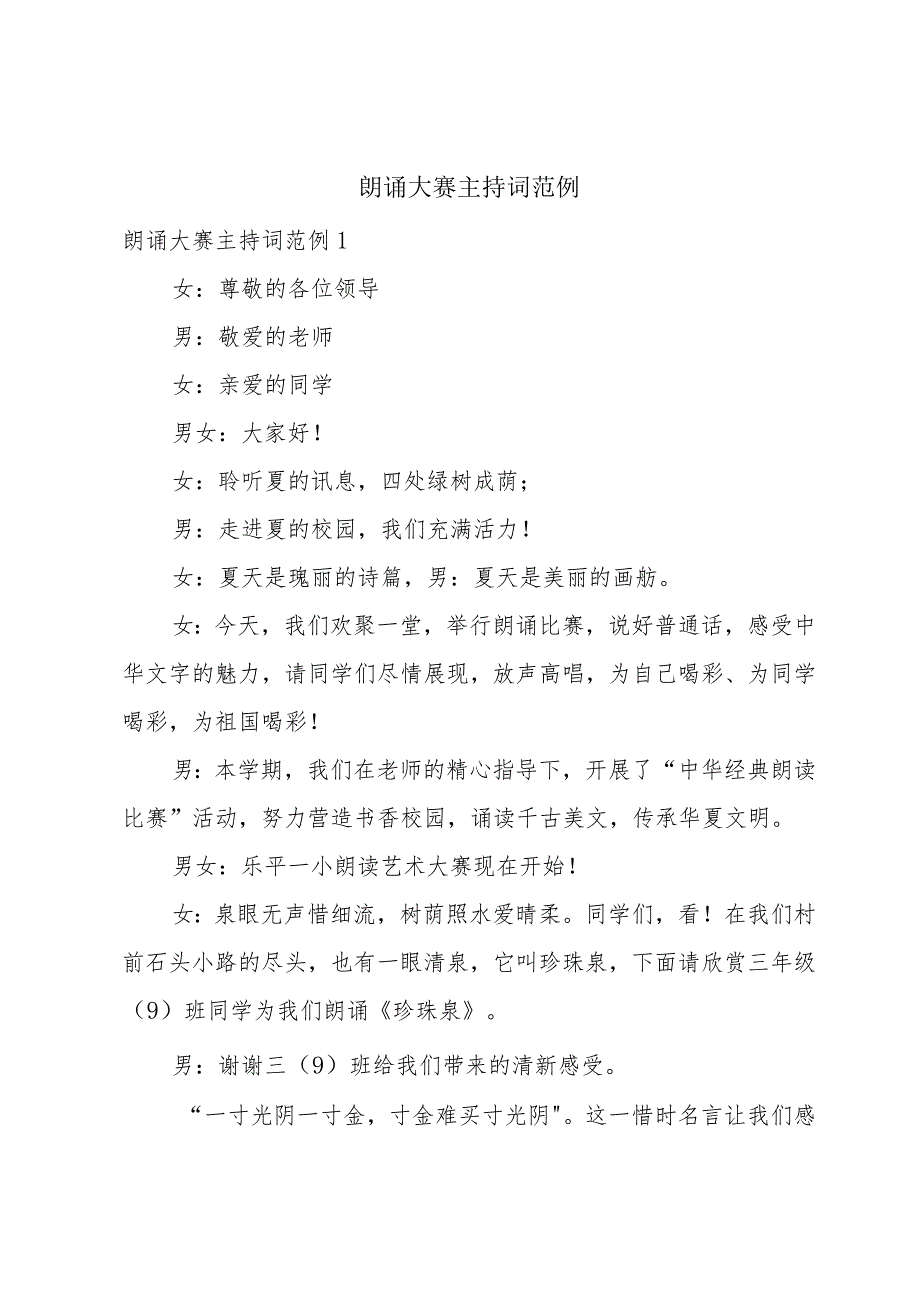 朗诵大赛主持词范例
朗诵大赛主持词范例1
女：尊敬的各位领导
男：敬爱的老师
女：亲爱的同学
男女：大家好！
女：聆听夏的讯息，四处绿树成荫；
男：走进夏的校园，我们充满活力！
女：夏天是瑰丽的诗篇，男：夏天是美丽的画舫。
女：今天，我们欢聚一堂，举行朗诵比赛，说好普通话，感受中
华文字的魅力，请同学们尽情展现，放声高唱，为自己喝彩、为同学
喝彩，为祖国喝彩！
男：本学期，我们在老师的精心指导下，开展了“中华经典朗读
比赛”活动，努力营造书香校园，诵读千古美文，传承华夏文明。
男女：乐平一小朗读艺术大赛现在开始！
女：泉眼无声惜细流，树荫照水爱晴柔。同学们，看！在我们村
前石头小路的尽头，也有一眼清泉，它叫珍珠泉，下面请欣赏三年级
（9）班同学为我们朗诵《珍珠泉》。
男：谢谢三（9）班给我们带来的清新感受。
“一寸光阴一寸金，寸金难买寸光阴"。这一惜时名言让我们感